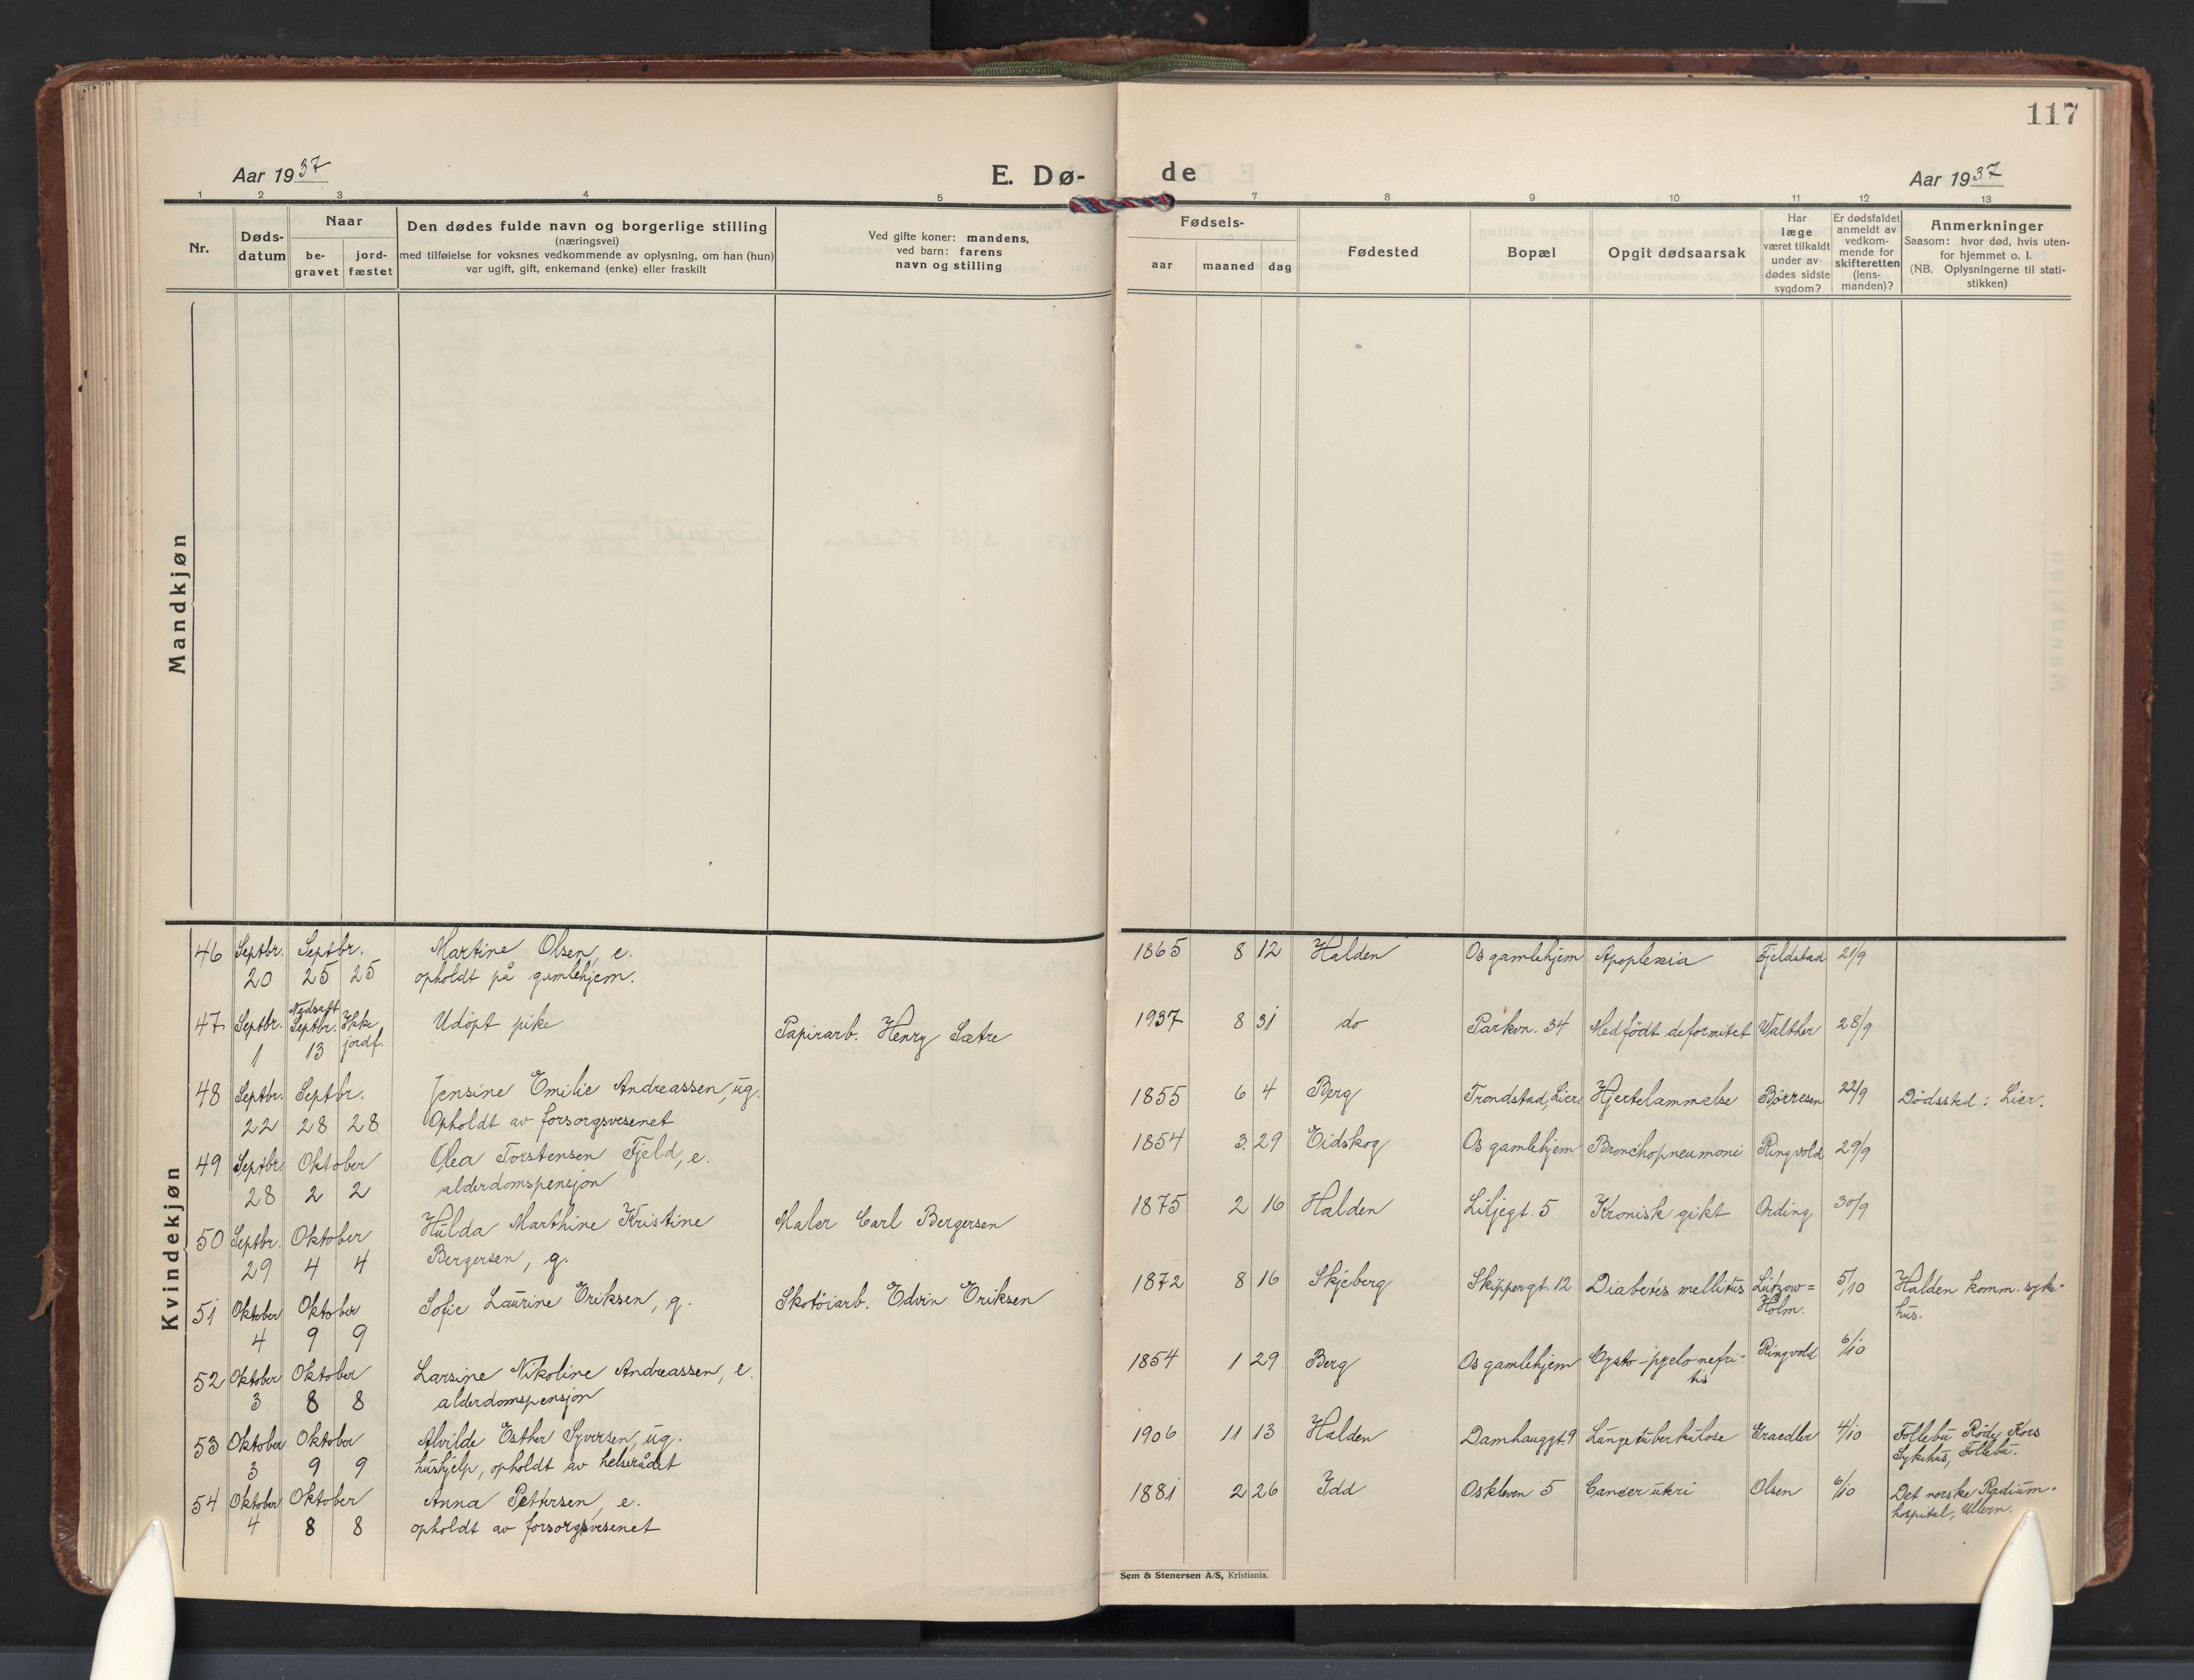 117
Aar 1937
E. Dø-
de
Aar 1937
1 2 3 4 5 7 8 9 10 11 12 13
Nr.
Døds-
datum
Naar
be-
gravet
jord-
fæstet
Den dødes fulde navn og borgerlige stilling
(næringsvei)
med tilføielse for voksnes vedkommende av oplysning, om han (hun)
var ugift, gift, enkemand (enke) eller fraskilt
Ved gifte koner: mandens,
ved barn: farens
navn og stilling
Fødsels-
aar maaned dag
Fødested
Bopæl
Opgit dødsaarsak
Har
læge
været tilkaldt
under av-
dødes sidste
sygdom?
Er dødsfaldet
anmeldt av
vedkom-
mende for
skifteretten
(lens-
manden)?
Anmerkninger
Saasom: hvor død, hvis uten-
for hjemmet o. l.
(NB. Oplysningerne til stati-
stikken)
Mandkjøn
Kvindekjøn
46 Septbr. Septbr. Martine Olsen, e. 1865 8 12 Halden Os gamlehjem Apoplexia Fjeldstad 21/9
20 25 25 opholdt på gamlehjem.
Nedsatt
47 Septbr. Septbr. Ikke Udöpt pike Papirarb. Henry Sætre 1937 8 31 do Parkvn. 34 Medfödt deformitet Walther 28/9
1 13 jordf.
48 Septbr. Septbr. Jensine Emilie Andreassen, ug. 1855 6 4 Berg Trondstad, Lier. Hjertelammelse Börresen 22/9 Dödssted: Lier.
22 28 28 Opholdt av forsorgsvesenet
49 Septbr. Oktober Olea Torstensen Fjeld, e. 1854 3. 29 Eidskog Os gamlehjem Bronchopneumoni Ringvold 29/9
28 2 2 alderdomspensjon
50 Septbr. Oktober Hulda Marthine Kristine Maler Carl Bergersen 1875 2 16 Halden Liljegt. 5 Kronisk gikt Ording 30/9
29 4 4 Bergersen, g.
51 Oktober Oktober Sofie Laurine Eriksen, g. Skotöiarb. Edvin Eriksen 1872 8 16 Skjeberg Skippergt. 12 Diabetes mellitus Lützow= 5/10 Halden komm. syke-
4 9 9 Holm. hus.
52 Oktober Oktober Larsine Nikoline Andreassen, e. 1854 1 29 Berg Os gamlehjem Cysto-pyelonefri- Ringvold 6/10
3 8 8 alderdomspensjon tis
53 Oktober Oktober Alvilde Esther Syversen, ug. 1906 11 13 Halden Damhauggt. 9 Lungetuberkulose Graedler 4/10 Follebu Röde Kors
3 9 9 hushjelp, opholdt av helserådet Sykehus, Follebu.
54 Oktober Oktober Anna Pettersen, e. 1881 2 26 Idd Oskleven 5 Cancer uteri Olsen 6/10 Det norske Radium-
4 8 8 opholdt av forsorgsvesenet hospital, Ullern.
Sem & Stenersen A/S, Kristiania.